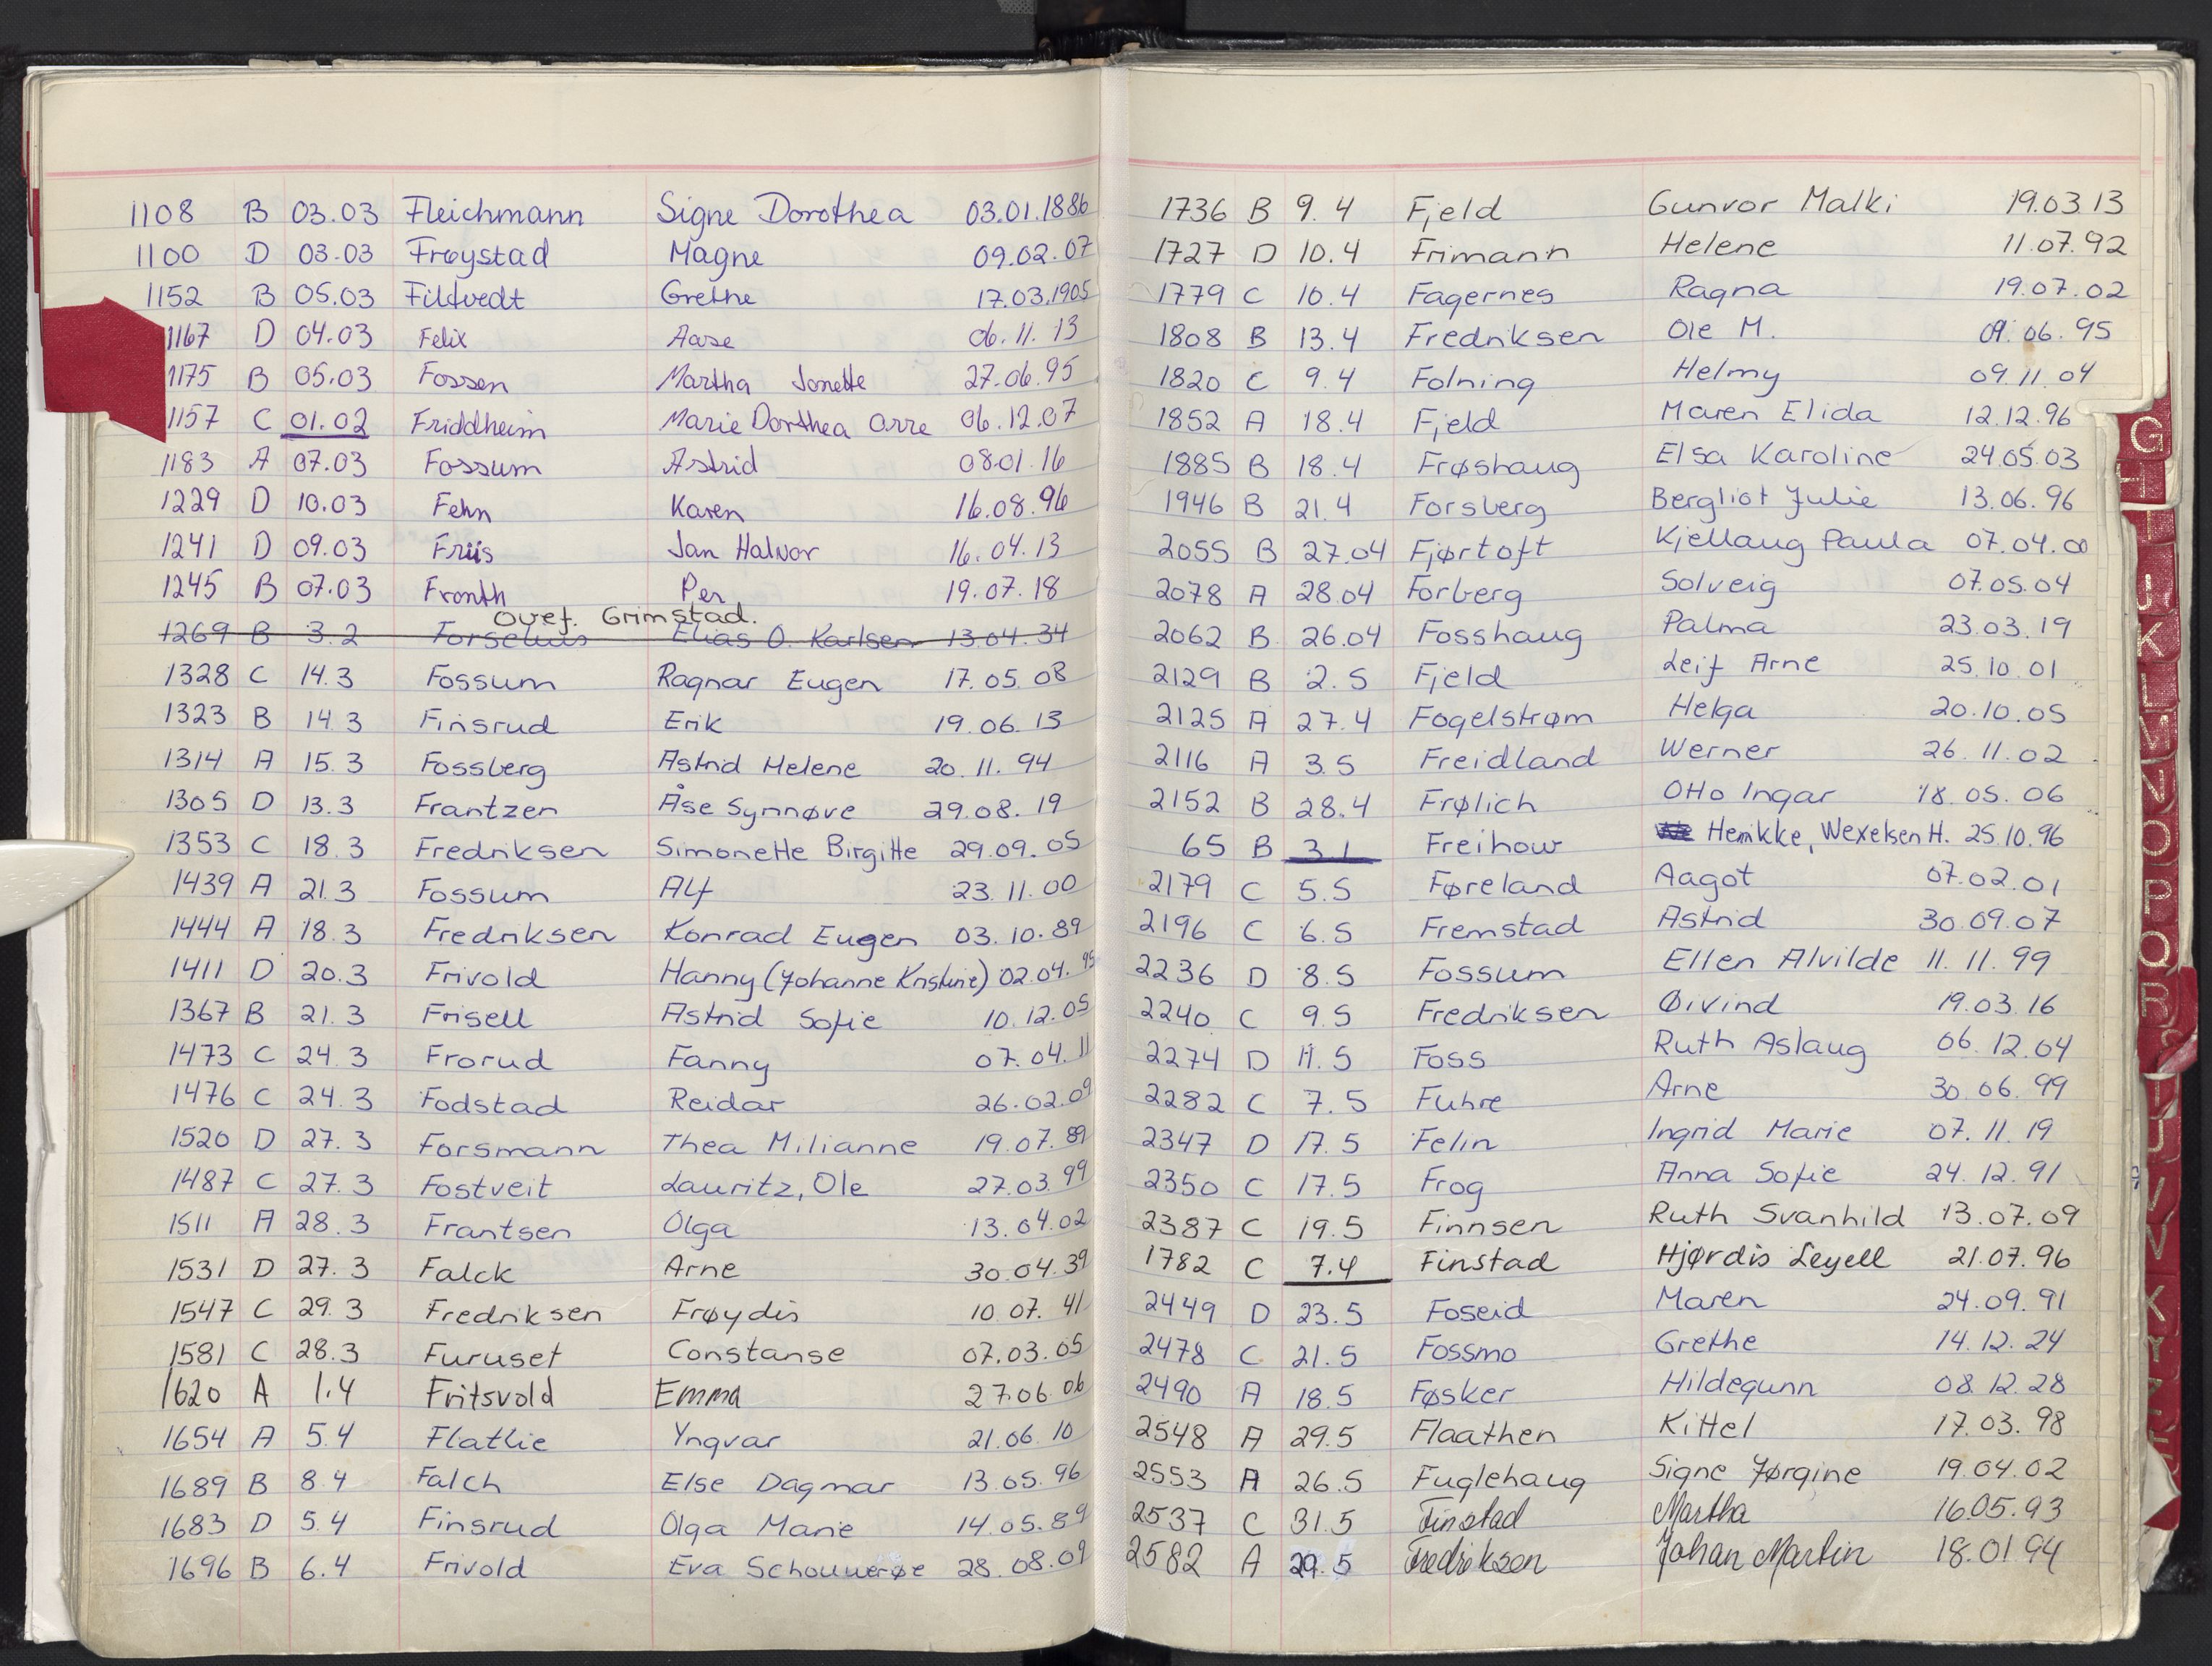 1108 B 03.03 Fleichmann Signe Dorothea 03.01.1886
1100 D 03.03 Frøystad Magne 09.02.07
1152 B 05.03 Filtvedt Grethe 17.03.1905
1167 D 04.03 Felix Aase 06.11.13
1175 B 05.03 Fossen Martha Jonette 27.06.95
1157 C 01.02 Friddheim Marie Dorthea Orre 06.12.07
1183 A 07.03 Fossum Astrid 08.01.16
1229 D 10.03 Fehn Karen 16.08.96
1241 D 09.03 Friis Jan Halvor 16.04.13
1245 B 07.03 Fronth Per 19.07.18
Overf. Grimstad.
1269 B 3.2 Elias O. Karlsen 13.04.34
1328 C 14.3 Fossum Ragnar Eugen 17.05.08
1323 B 14.3 Finsrud Erik 19.06.13
1314 A 15.3 Fossberg Astrid Helene 20.11.94
1305 D 13.3 Frantzen Åse Synnøve 29.08.19
1353 C 18.3 Fredriksen Simonette Birgitte 29.09.05
1439 A 21.3 Fossum Alf 23.11.00
1444 A 18.3 Fredriksen Konrad Eugen 03.10.89
1411 D 20.3 Frivold Hanny (Johanne Kristine) 02.04.95
1367 B 21.3 Frisell Astrid Sofie 10.12.05
1473 C 24.3 Frorud Fanny 07.04.11
1476 C 24.3 Fodstad Reidar 26.02.09
1520 D 27.3 Forsmann Thea Milianne 19.07.89
1487 C 27.3 Fostveit Lauritz, Ole 27.03.99
1511 A 28.3 Frantsen Olga 13.04.02
1531 D 27.3 Falck Arne 30.04.39
1547 C 29.3 Fredriksen Frøydis 10.07.41
1581 C 28.3 Furuset Constanse 07.03.05
1620 A 1.4 Fritsvold Emma 27.06.06
1654 A 5.4 Flatlie Yngvar 21.06.10
1689 B 8.4 Falch Else Dagmar 13.05.96
1683 D 5.4 Finsrud Olga Marie 14.05.89
1696 B 6.4 Frivold Eva 28.08.09
1736 B 9.4 Fjeld Gunvor Malki 19.03.13
1727 D 10.4 Frimann Helene 11.07.92
1779 C 10.4 Fagernes Ragna 19.07.02
1808 B 13.4 Fredriksen Ole M. 09.06.95
1820 C 9.4 Folning Helmy 09.11.04
1852 A 18.4 Fjeld Maren Elida 12.12.96
1885 B 18.4 Frøshaug Elsa Karoline 24.05.03
1946 B 21.4 Forsberg Bergliot Julie 13.06.96
2055 B 27.04 Fjørtoft Kjellaug Paula 07.04.00
2078 A 28.04 Forberg Solveig 07.05.04
2062 B 26.04 Fosshaug Palma 23.03.19
2129 B 2.5 Fjeld Leif Arne 25.10.01
2125 A 27.4 Fogelstrøm Helga 20.10.05
2116 A 3.5 Freidland Werner 26.11.02
2152 B 28.4 Frølich Otto Ingar 18.05.06
65 B 3.1 Freihow Henrikke, Wexelsen H. 25.10.96
2179 C 5.5 Føreland Aagot 07.02.01
2196 C 6.5 Fremstad Astrid 30.09.07
2236 D 8.5 Fossum Ellen Alvilde 11.11.99
2240 C 9.5 Fredriksen Øivind 19.03.16
2274 D 11.5 Foss Ruth Aslaug 06.12.04
2282 C 7.5 Fuhre Arne 30.06.99
2347 D 17.5 Felin Ingrid Marie 07.11.19
2350 C 17.5 Frog Anna Sofie 24.12.91
2387 C 19.5 Finnsen Ruth Svanhild 13.07.09
1782 C 7.4 Finstad Hjørdis Leyell 21.07.96
2449 D 23.5 Foseid Maren 24.09.91
2478 C 21.5 Fossmo Grethe 14.12.24
2490 A 18.5 Føsker Hildegunn 08.12.28
2548 A 29.5 Flaathen Kittel 17.03.98
2553 A 26.5 Fuglehaug Signe Jørgine 19.04.02
2537 C 31.5 Finstad Martha 16.05.93
2582 A 29.5 Fredriksen Johan Martin 18.01.94
G
H
I
J
K
L
M
N
O
P
Q
R